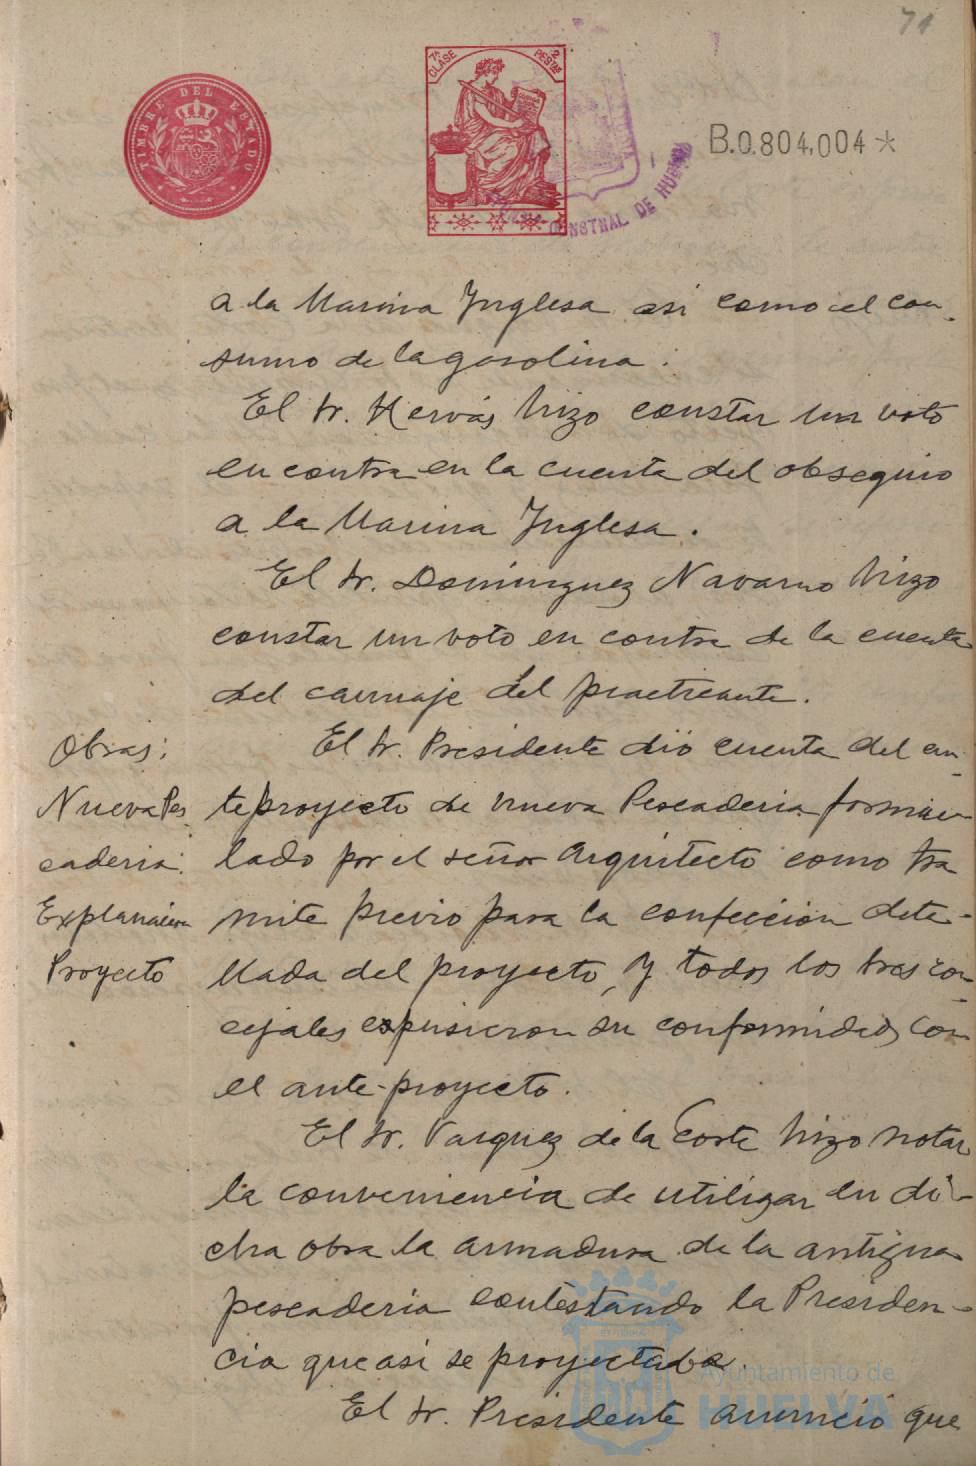 71
TIMBRE DEL ESTADO
7ª CLASE
2 PESETAS
CONSTNAL. DE HUELVA
B.0.804,004*
a la Marina Ynglesa asi como el con-
sumo de la gasolina.
El Sr. Hervás hizo constar un voto
en contra en la cuenta del obsequio
a la Marina Ynglesa.
El Sr. Dominguez Navarro hizo
constar un voto en contra de la cuenta
del carruaje del practicante.
Obras:
Nueva Pes-
caderia.
Proyecto
El Sr. Presidente dió cuenta del an-
teproyecto de nueva Pescaderia formu-
lado por el señor Arquitecto como tra
mite previo para la confeccion deta-
llada del proyecto, y todos los tres con-
cejales expusieron su conformidad con
el ante-proyecto.
El Sr. Vazquez de la Corte hizo notar
la conveniencia de utilizar en di-
cha obra la armadura de la antigua
pescaderia contestando la Presiden-
cia que asi se proyectaba.
El Sr. Presidente anunció que
Ayuntamiento de
HUELVA